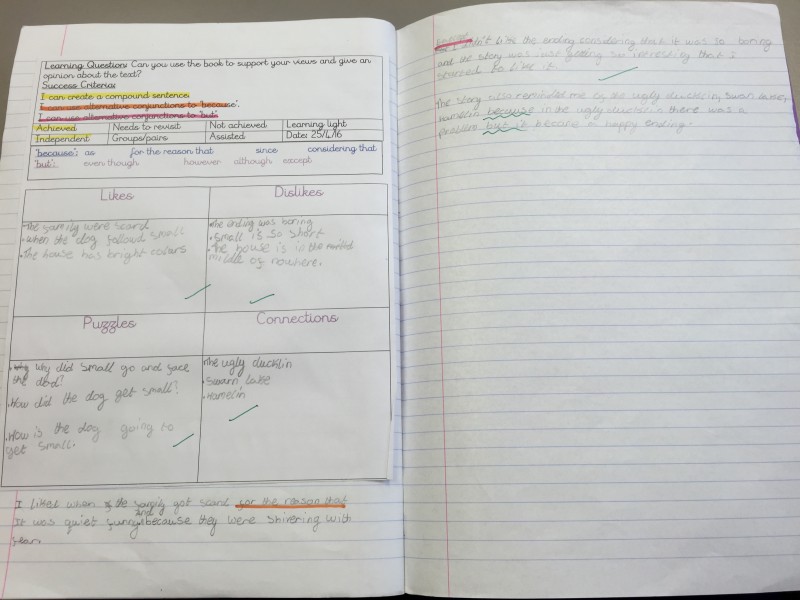 Learning Question: Can you use the book to support your views and give an
opinion about the text?
Success Criteria:
I can create a compound sentence.
I can use alternative conjunctions to 'because'.
I can use alternative conjunctions to 'but'
Achieved Needs to revisit Not achieved Learning light
Independent Groups/pairs Assisted Date: 25/4/16
'because': as for the reason that since considering that
'but': even though however although except
Likes
•The family were scard
•when the dog followd small
•The house has bright colours
Dislikes
•The ending was boring
•Small is so short
•The house is in the
middle of nowhere.
Puzzles
why did Small go and face
the dad?
•How did the dog get small?
•How is the dog going to
get small.
Connections
•The ugly ducklin
•Swarn lake
•Hamelin
I liked when the family got scard for the reason that
It was quiet funny and because they were shivering with
fear.
I didn't like the ending considering that it was so boring
and the story was just getting so interesting that I
started to like it.
The story also reminded me by the ugly ducklin, swan lake,
because in the ugly ducklin there was a
problem but it become a happy ending.